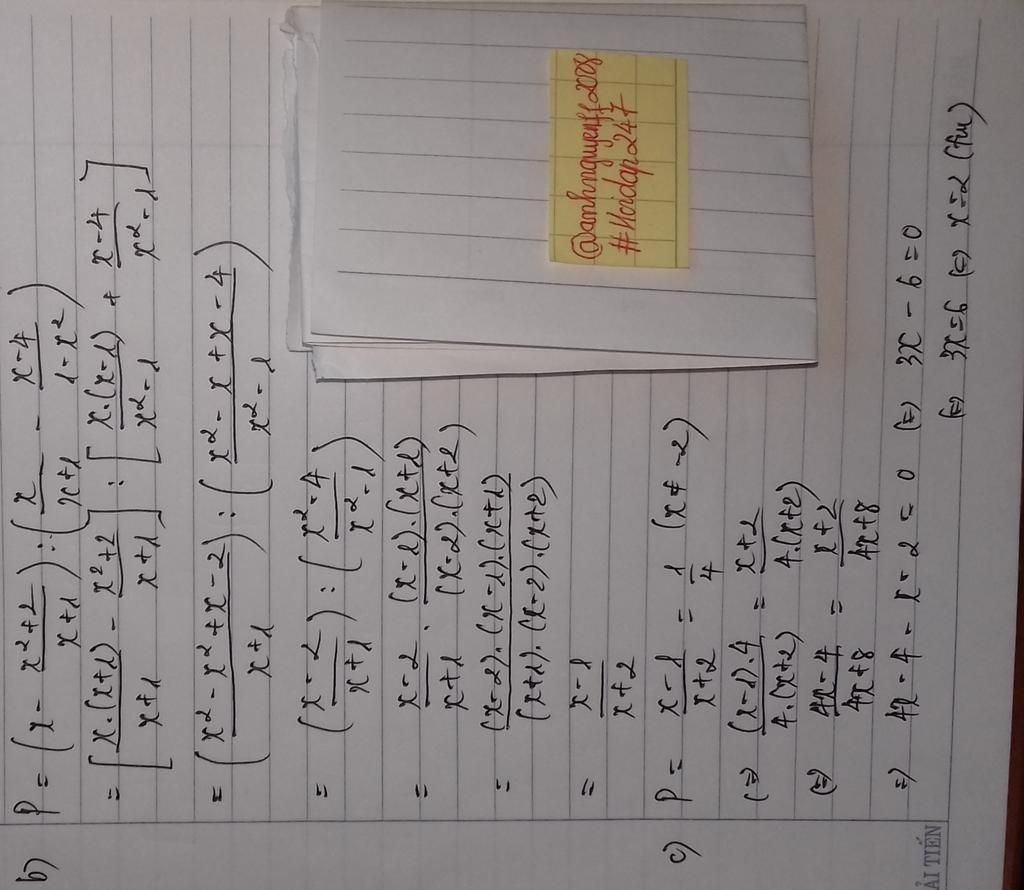 b) P = (x - \frac{x^2+2}{x+1}) : (\frac{x}{x+1} - \frac{x-4}{1-x^2})
= [\frac{x.(x+1)}{x+1} - \frac{x^2+2}{x+1}] : [\frac{x.(x-1)}{x^2-1} + \frac{x-4}{x^2-1}]
= (\frac{x^2-x^2+x-2}{x+1}) : (\frac{x^2-x+x-4}{x^2-1})
= (\frac{x-2}{x+1}) : (\frac{x^2-4}{x^2-1})
= \frac{x-2}{x+1} . \frac{(x-1).(x+1)}{(x-2).(x+2)}
= \frac{(x-2).(x-1).(x+1)}{(x+1).(x-2).(x+2)}
= \frac{x-1}{x+2}
c) P = \frac{x-1}{x+2} = \frac{1}{4} (x ≠ -2)
(=) \frac{(x-1).4}{4.(x+2)} = \frac{x+2}{4.(x+2)}
(=) \frac{4x-4}{4x+8} = \frac{x+2}{4x+8}
=) 4x - 4 - x - 2 = 0 (=) 3x - 6 = 0
(=) 3x = 6 (=) x = 2 (t/m)
@anhnguyenff2008
#Hoidap247
ẢI TIẾN